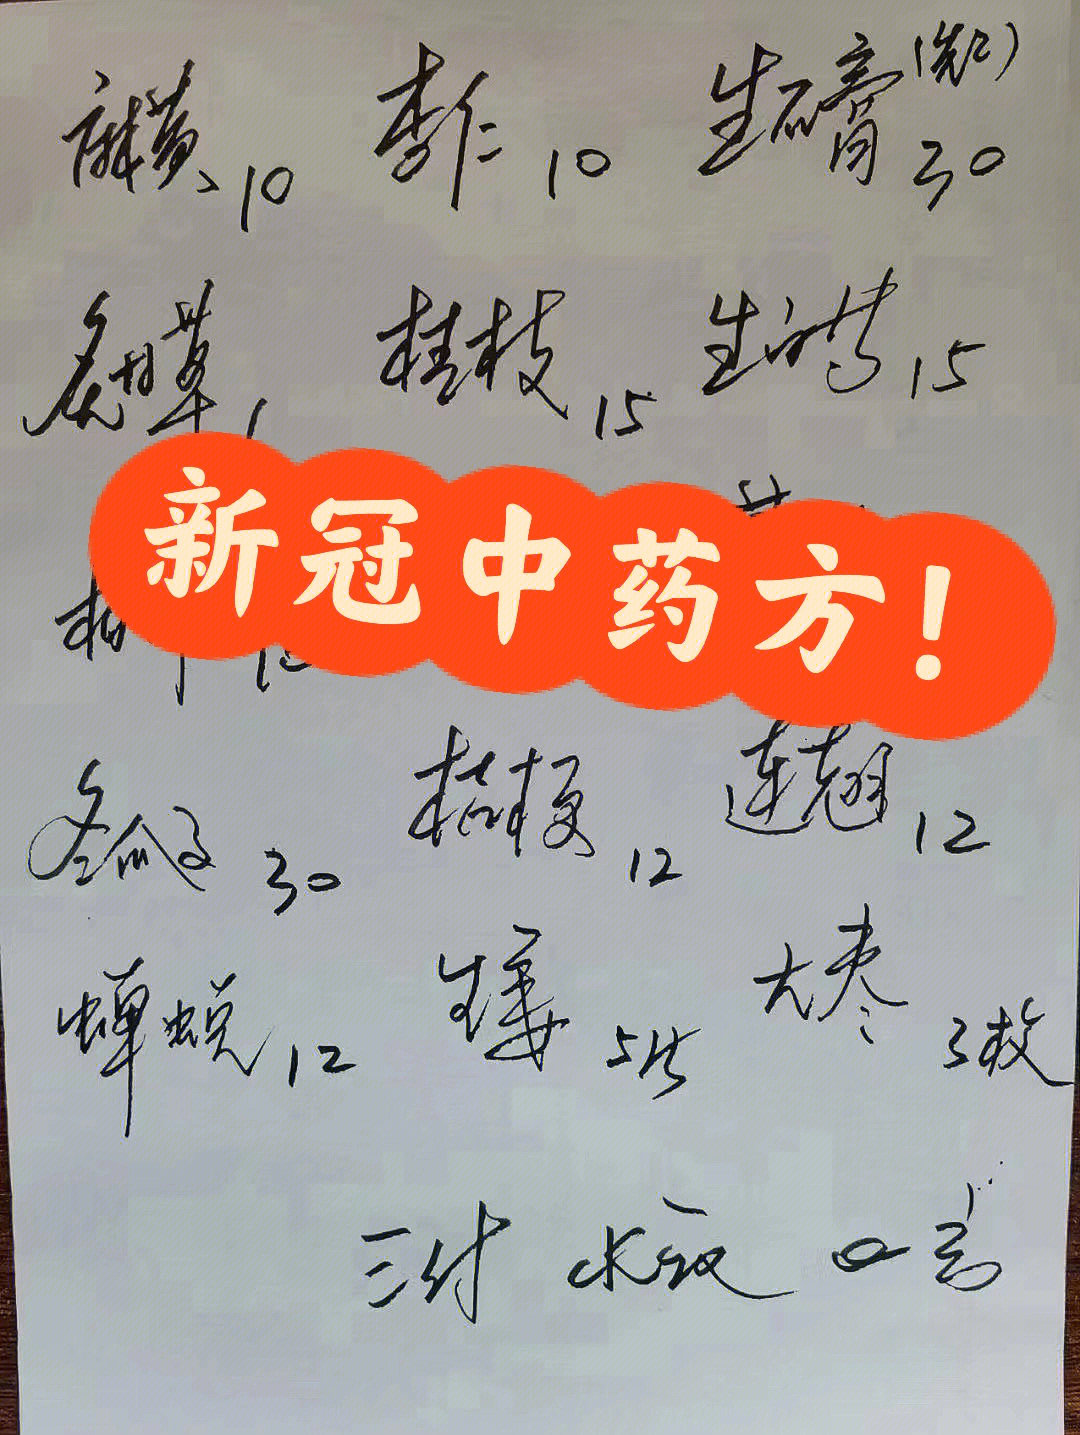 麻黄 10 杏仁 10 生石膏 30
炙甘草 桂枝 15 生白芍 15
新冠中药方!
冬瓜子 30 桔梗 12 连翘 12
蝉蜕 12 生姜 5片 大枣 3枚
三付 水煎